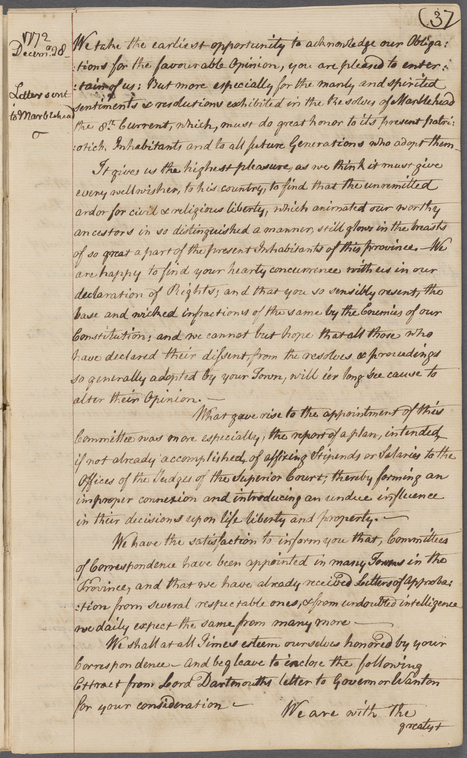 37
1772
Decemr. 28
Letter sent
to Marblehead
We take the earliest opportunity to acknowledge our Obliga-
:tions for the favourable Opinion, you are pleased to enter-
:tain of us: But more especially for the manly and spirited
sentiments & resolutions exhibited in the Resolves of Marblehead
the 8th. Current, which, must do great honor to its present patri-
:otick Inhabitants and to all future Generations who adopt them
It gives us the highest pleasure, as we think it must give
every well wisher, to his country, to find that the unremitted
ardor for civil & religious liberty, which animated our worthy
ancestors in so distinguished a manner, still glows in the breasts
of so great a part of the present Inhabitants of this province. We
are happy to find your hearty concurrence with us in our
declaration of Rights; and that you so sensibly resent, the
base and wicked infractions of the same by the Enemies of our
Constitution; and we cannot but hope that all those who
have declared their dissent, from the resolves & proceedings
so generally adopted by your Town, will e'er long see cause to
alter their Opinion. —
What gave rise to the appointment of this
Committee was more especially, the report of a plan, intended,
if not already accomplished, of affixing Stipends or Salaries to the
Offices of the Judges of the Superior Court; thereby forming an
improper connexion and introducing an undue influence
in their decisions upon life liberty and property. —
We have the satisfaction to inform you that, Committees
of Correspondence have been appointed in many Towns in the
Province, and that we have already received Letters of Approba-
:tion from several respectable ones, & from undoubted intelligence
we daily expect the same from many more —
We shall at all Times esteem ourselves honored by your
Correspondence — and beg leave to inclose the following
Extract from Lord Dartmouths letter to Governor Wanton
for your consideration —
We are with the
greatest